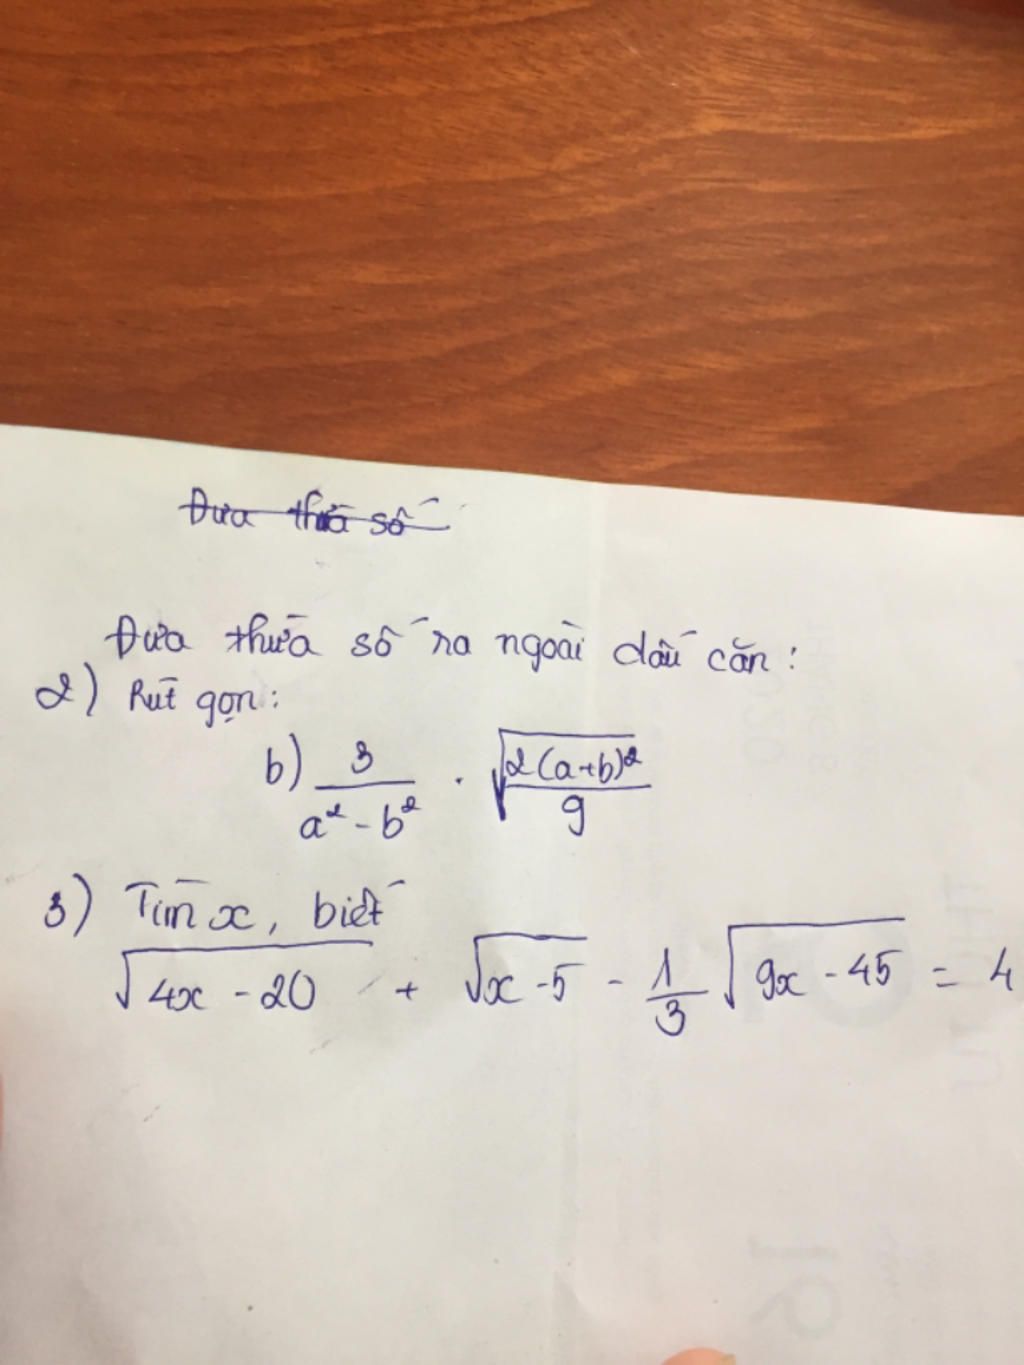 Đưa thừa số
Đưa thừa số ra ngoài dấu căn :
2) Rút gọn :
b) 3/(a² - b²) . √(2(a+b)²/9)
3) Tìm x, biết
√(4x - 20) + √(x - 5) - 1/3 √(9x - 45) = 4